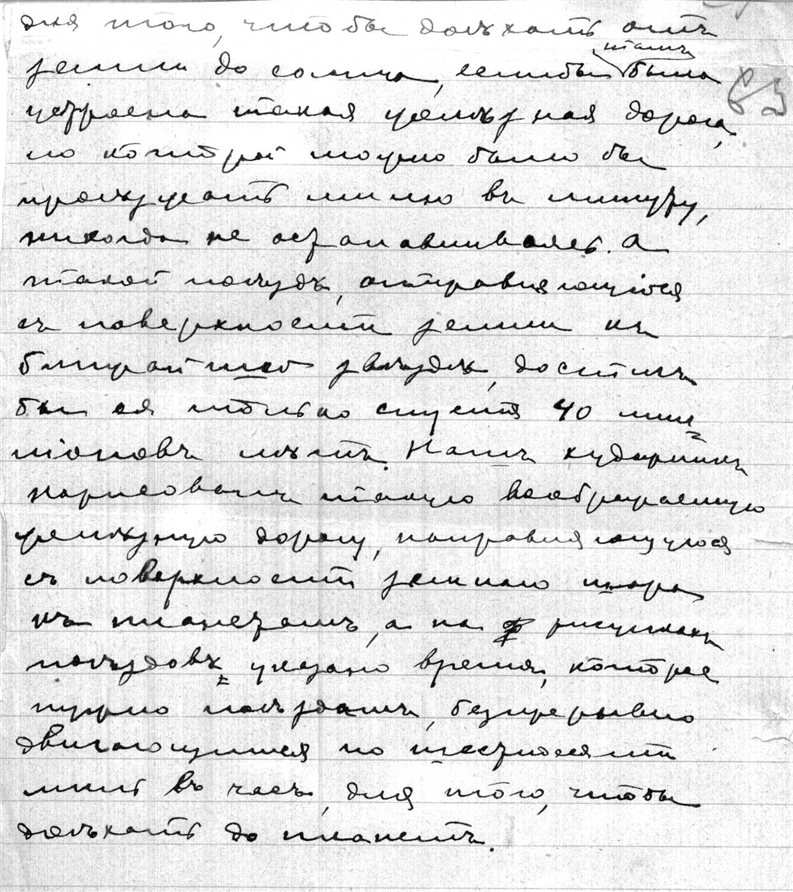 для того, чтобы доѣхать отъ
тамъ
земли до солнца, еслибы была
устроена такая желѣзная дорога,
по которой можно было бы
проѣзжать милю въ минуту,
никогда не останавливаясь. А
такой поѣздъ, отправляющійся
съ поверхности земли къ
ближайшей звѣздѣ, достигъ
бы ея только спустя 40 мил
ліоновъ лѣтъ. Нашъ художникъ
нарисовалъ такую воображаемую
желѣзную дорогу, направляющуюся
съ поверхности земного шара
къ планетамъ, а на рисункахъ
поѣздовъ указано время, которое
нужно поѣздамъ, безпрерывно
двигающимся по шестидесяти
миль въ часъ, для того, чтобы
доѣхать до планетъ.